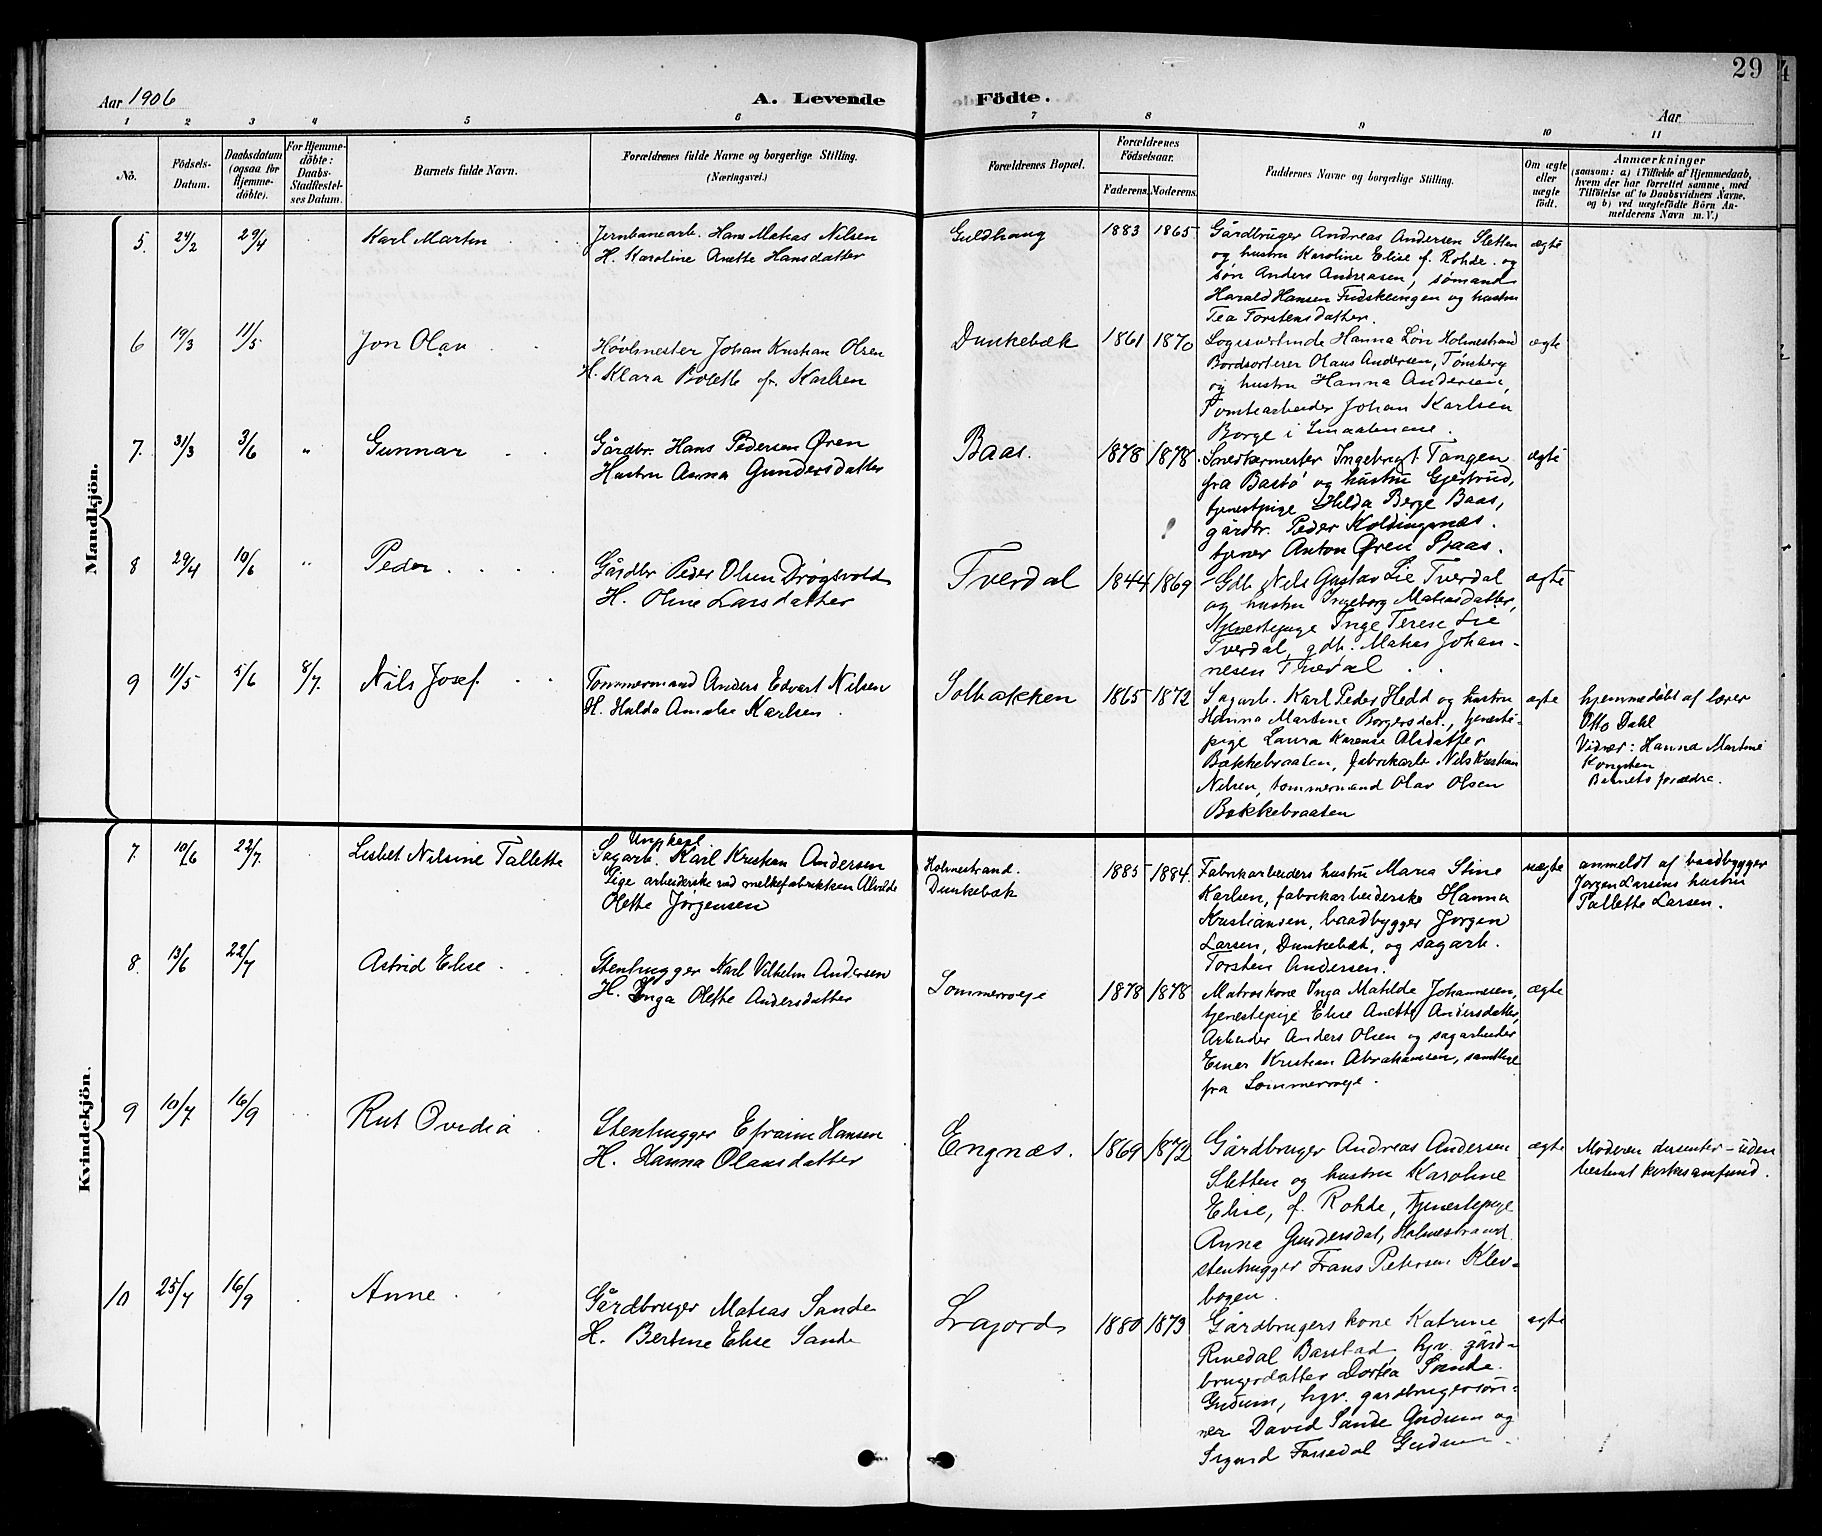 29
Aar 1906
A. Levende
Födte.
Aar
1 2 3 4 5 6 7 8 9 10 11
No.
Födsels-
Datum.
Daabsdatum
(ogsaa for
Hjemme-
döbte).
For Hjemme-
döbte:
Daabs-
Stadfæstel-
ses Datum.
Barnets fulde Navn.
Forældrenes fulde Navne og borgerlige Stilling.
(Næringsvei.)
Forældrenes Bopæl.
Forældrenes
Födselsaar.
Faderens. Moderens.
Faddernes Navne og borgerlige Stilling.
Om ægte
eller
uægte
födt.
Anmærkninger
(saasom: a) i Tilfælde af Hjemmedaab,
hvem der har forrettet samme, med
Tilföielse af to Daabsvidners Navne,
og b) ved uægtefödte Börn An-
melderens Navn m. V.)
Mandkjön.
5. 24/2 29/4 Karl Martin
Jernbanearb. Hans Matias Nilsen
H. Karoline Anette Hansdatter
Guldhaug 1883 1865
Gårdbruger Andreas Andersen Sletten
og hustru Karoline Elise f. Rohde. og
søn Anders Andreasen, sømand
Harald Hansen Fridsklingen og hustru
Tea Torstensdatter.
ægte
6 19/3 11/5 Jon Olav
Høvlmester Johan Kristian Olsen
H. Klara Bolette f. Karlsen
Dunkebæk 1861 1870
Logisvertinde Hanna Lön Holmestrand
Bordsorterer Olaus Andersen, Tønsberg
og hustru Hanna Andersen,
Tomtearbeider Johan Karlsen
Borge i Smaalenene.
ægte
7. 31/3 3/6 " Gunnar
Gårdbr. Hans Pedersen Øren
Hustru Anna Gundersdatter
Baas. 1878 1878
Snedkermester Ingebrigt Tangen
fra Bastö og hustru Gjertrud,
tjenestpige Hilda Berge Baas,
gårdbr. Peder Koldingsnæs.
tjener Anton Øren Baas.
ægte
8 29/4 10/6 " Peder
Gårdbr Peder Olsen Drøgsvold
H. Oline Larsdatter
Tverdal 1844 1869
Gdb. Nils Gustav Lie Tverdal
og hustru Ingeborg Matiasdatter,
Tjenestepige Inge Terese Lie
Tverdal, gdb. Matias Johan-
nesen Tverdal
ægte
9 11/5 5/6 8/7. Nils Josef.
Tømmermand Anders Edvart Nilsen
H. Hulda Amalie Karlsen.
Solbakken 1865 1872
Sagarb. Karl Peder Hedd og hustru
Hanna Martine Borgersdat., tjeneste-
pige Laura Karense Alsdatter
Bakkebraaten, fabrikarb Nils Kristian
Nilsen, tømmermand Olav Olsen
Bakkebraaten
ægte
hjemmedøbt af lærer
Otto Dahl
Vidner: Hanna Martine
Kongsten
Barnets forældre.
Kvindekjön.
7. 10/6 22/7. Lisbet Nilsine Tallette
Ungkarl.
Sagarb. Karl Kristian Andersen
Pige arbeiderske ved melkefabrikken Alvilde
Olette Jørgensen
Holmestrand.
Dunkebæk 1885 1884.
Fabrikarbeiders hustru Maria Stine
Karlsen, fabrikarbeiderske Hanna
Kristiansen, baadbygger Jørgen
Larsen, Dunkebæk, og sagarb.
Torsten Andersen.
uægte
anmeldt af baadbygger
Jørgen Larsens hustru
Tallette Larsen.
8. 13/6 22/7 Astrid Elise
Stenhugger Karl Vilhelm Andersen
H. Inga Olette Andersdatter
Sommerveie 1878 1878
Matroskone Inga Matilde Johannesen,
tjenestepige Elise Anette Andersdatter,
Arbeider Anders Olsen og sagarbeider
Einar Kristian Abrahamsen, samtlige
fra Sommerveie.
ægte
9 10/7 16/9 Rut Ovedia
Stenhugger Efraim Hansen
H. Hanna Olausdatter
Engnæs. 1869 1872
Gårdbruger Andreas Andersen
Sletten og hustru Karoline
Elise, f. Rohde, tjenestepige
Anna Gundersdat, Holmestrand
stenhugger Frans Petersen Klev-
bogen.
ægte
Moderen dissenter - uden
bestemt kirkesamfund.
10 25/7 16/9 Anne
Gårdbruger Matias Sande
H. Bertine Elise Sande
1880 1873
Gårdbrugers kone Katrine
Barstad, hjv. gård-
brugerdatter Dortea Sande.
Gudum, hjv. gardbrugersøn-
ner David Sande Gudum og
Sigurd Fossedal Gudum.
ægte